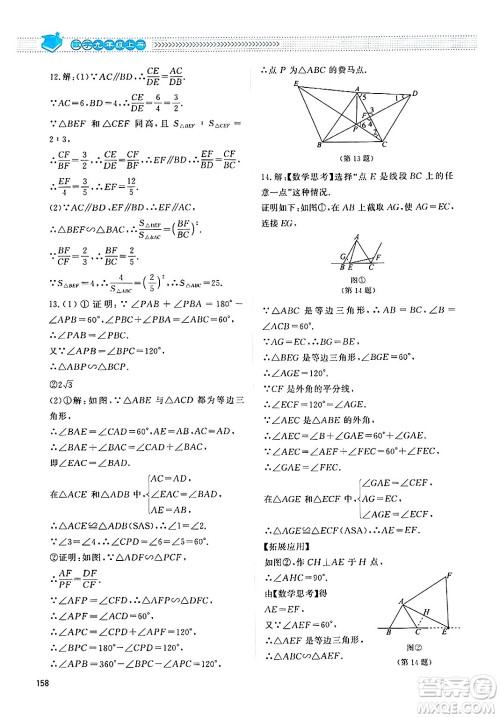 数学九年级上册
12.解:(1)∵AC∥BD,∴CE/DE=AC/BD.
∵AC=6,BD=4,∴CE/DE=6/4=3/2.
∵△BEF和△CEF同高,且S△BEF∶S△CEF=
2∶3,∴CF/BF=3/2,∴BF/BC=2/5.
∵EF∥BD,∴EF/BD=CF/BC,
∴EF/4=3/5,∴EF=12/5.
(2)∵AC∥BD,EF∥BD,
∴EF∥AC,
∴△BEF∽△ABC,∴S△BEF/S△ABC=(BF/BC)².
∵BF/BC=2/5,
∵S△BEF=4,∴4/S△ABC=(2/5)²,∴S△ABC=25.
13.(1)①证明:∵∠PAB+∠PBA=180°-
∠APB=60°,∠PBC+∠PBA=∠ABC=60°,
∴∠PAB=∠PBC.
又∵∠APB=∠BPC=120°,
∴△ABP∽△BCP.
②2√3
(2)①解:∵△ABE与△ACD都为等边三
角形,
∴∠BAE=∠CAD=60°,AE=AB,AC=AD,
∴∠BAE+∠BAC=∠CAD+∠BAC,
即∠EAC=∠BAD.
在△ACE和△ADB中,{AC=AD,
∠EAC=∠BAD,
AE=AB,
∴△ACE≌△ADB(SAS),∴∠1=∠2.
∵∠3=∠4,∴∠CPD=∠6=∠5=60°.
②证明:如图,∵△ADF∽△CFP,
∴AF/PF=DF/CF.
∵∠AFP=∠CFD,∴△AFP∽△DFC,
∴∠APF=∠ACD=60°,
∴∠APC=∠CPD+∠APF=120°,
∴∠BPC=180°-∠CPD=120°,
∴∠APB=360°-∠BPC-∠APC=120°,
∴点P为△ABC的费马点.
E
A
D
5
1
F
3
6
4
P
2
B
C
(第13题)
14.解:【数学思考】选择“点E是线段BC上的任
意一点”这种情况.
证明如下:如图①,在AB上截取AG,使AG=EC,
连接EG,
A
G
F
B
E
C
图①
(第14题)
∵△ABC是等边三角形,
∴AB=BC,∠B=∠ACB=60°.
∵AG=EC,∴BG=BE,
∴△BEG是等边三角形,∠BGE=60°,
∴∠AGE=120°.
∵CF是外角的平分线,
∴∠ECF=120°=∠AGE.
∵∠AEC是△ABE的外角,
∴∠AEC=∠B+∠GAE=60°+∠GAE.
∵∠AEC=∠AEF+∠FEC=60°+∠FEC,
∴∠GAE=∠FEC.
在△AGE和△ECF中,{∠AGE=∠ECF,
AG=EC,
∠GAE=∠CEF,
∴△AGE≌△ECF(ASA),∴AE=EF.
【拓展应用】
如图②,作CH⊥AE于H点,
∴∠AHC=90°.
由【数学思考】得
AE=EF.
又∵∠AEF=60°,
∴△AEF是等边三角形,
F
A
H
B
C
E
图②
(第14题)
158